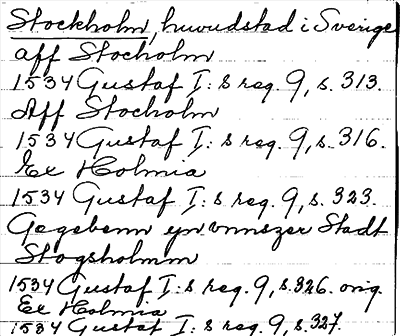 Stockholm, huvudstad i Sverige
aff Stocholm
1534 Gustaf I:s reg. 9, s. 313.
Aff Stocholm
1534 Gustaf I:s reg. 9, s. 316.
Ex Holmia
1534 Gustaf I:s reg. 9, s. 323.
Gegebenn ynn vnnszer Stadt
Stogsholmm
1534 Gustaf I:s reg. 9, s. 326. orig.
Ex Holmia
1534 Gustaf I:s reg. 9, s. 327.